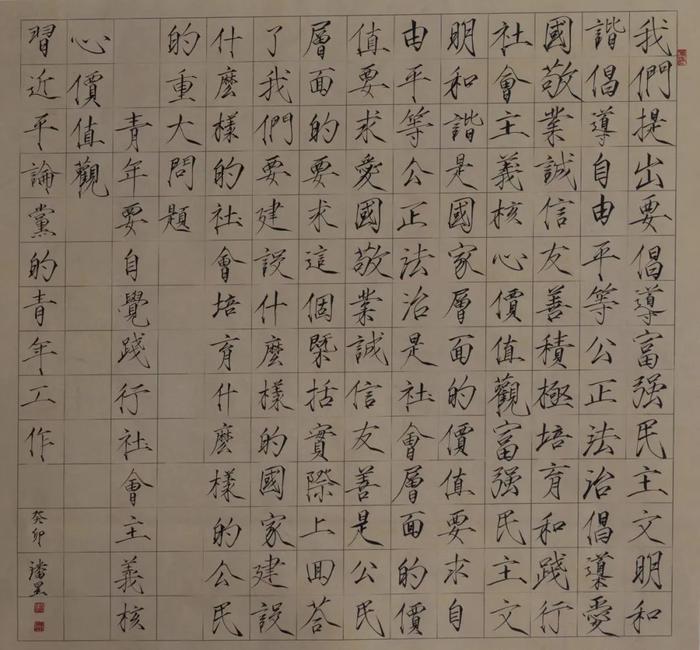 我們提出要倡導富强民主文明和
諧倡導自由平等公正法治倡導愛
國敬業誠信友善積極培育和踐行
社會主義核心價值觀富强民主文
明和諧是國家層面的價值要求自
由平等公正法治是社會層面的價
值要求愛國敬業誠信友善是公民
層面的要求這個槩括實際上回答
了我們要建設什麼樣的國家建設
什麼樣的社會培育什麼樣的公民
的重大問題
青年要自覺踐行社會主義核
心價值觀
習近平論黨的青年工作
癸卯 潘昱